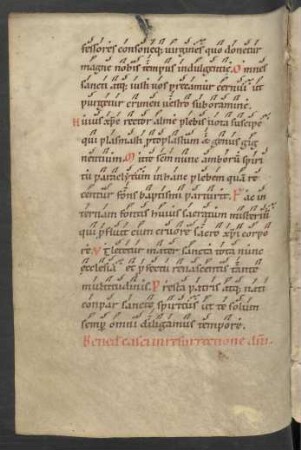 fessores consoneq; uirgines quo donetur
magne nobis tempus indulgentie. Omnes
sancti atq; iusti uos precamur cernui ut
purgetur crimen uestro sub oramine.
Huius xpe rector alme plebis uota suscipe
qui plasmasti protoplastum & genus gig
nentium. Mitte scm nunc amborum spiri
tu paraclytum in hanc plebem quam re
centem fons baptismi parturit. Fac in
ternam fontis huius sacratum misterium
qui profluit cum cruore sacro xpi corpo
re. Ut letetur mater sancta tota nunc
ecclesia ex profectu renascentis tante
multitudinis. Presta patris atq; nati
conpar sancte spiritus ut te solum
semper omni diligamus tempore.